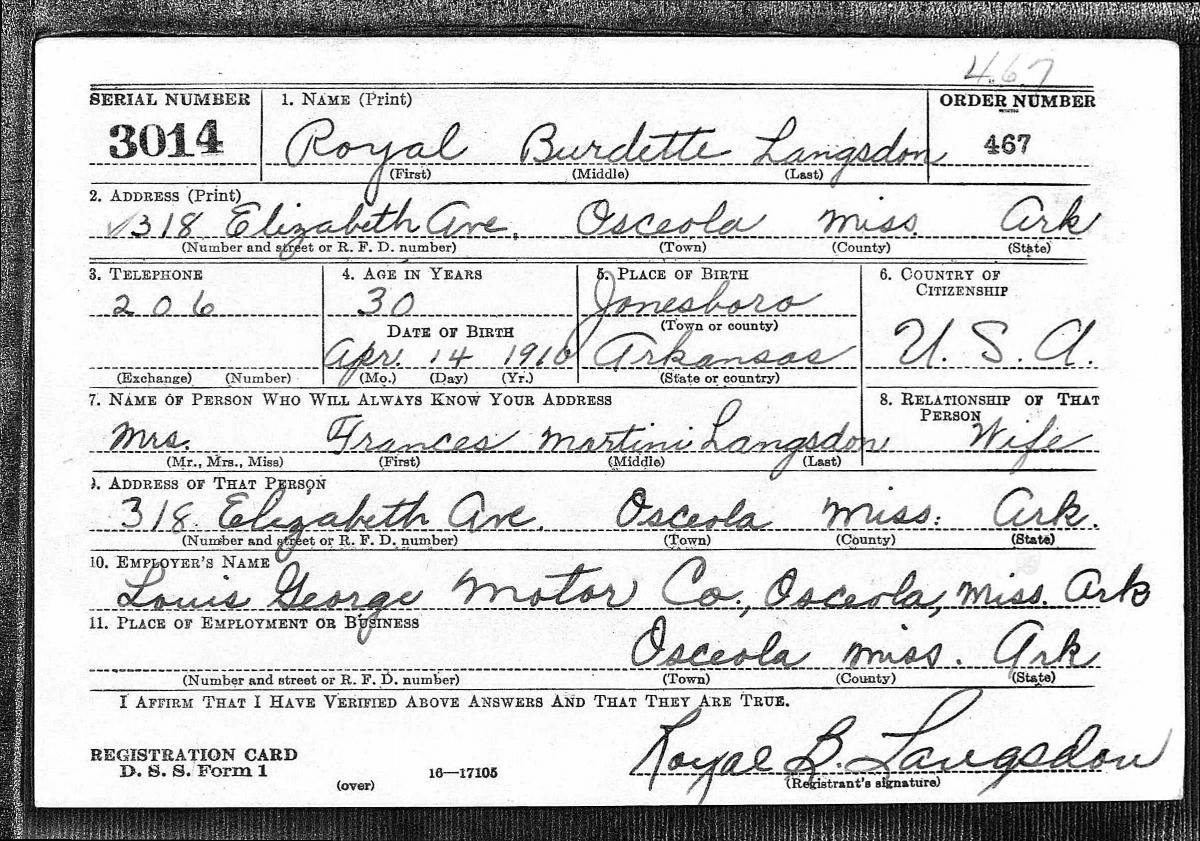 467
SERIAL NUMBER 1. NAME (Print) ORDER NUMBER
3014 Royal Burdette Langsdon 467
(First) (Middle) (Last)
2. ADDRESS (Print)
318 Elizabeth Ave. Osceola Miss. Ark
(Number and street or R. F. D. number) (Town) (County) (State)
3. TELEPHONE 4. AGE IN YEARS 5. PLACE OF BIRTH 6. COUNTRY OF CITIZENSHIP
206 30 Jonesboro
(Town or county)
DATE OF BIRTH
Apr. 14 1910 Arkansas U. S. A.
(Exchange) (Number) (Mo.) (Day) (Yr.) (State or country)
7. NAME OF PERSON WHO WILL ALWAYS KNOW YOUR ADDRESS 8. RELATIONSHIP OF THAT PERSON
Mrs. Frances Martini Langsdon Wife
(Mr., Mrs., Miss) (First) (Middle) (Last)
9. ADDRESS OF THAT PERSON
318 Elizabeth Ave. Osceola Miss. Ark.
(Number and street or R. F. D. number) (Town) (County) (State)
10. EMPLOYER'S NAME
Louis George Motor Co., Osceola, Miss. Ark
11. PLACE OF EMPLOYMENT OR BUSINESS
Osceola Miss. Ark
(Number and street or R. F. D. number) (Town) (County) (State)
I AFFIRM THAT I HAVE VERIFIED ABOVE ANSWERS AND THAT THEY ARE TRUE.
REGISTRATION CARD
D. S. S. Form 1 16—17105 Royal B. Langsdon
(over) (Registrant's signature)